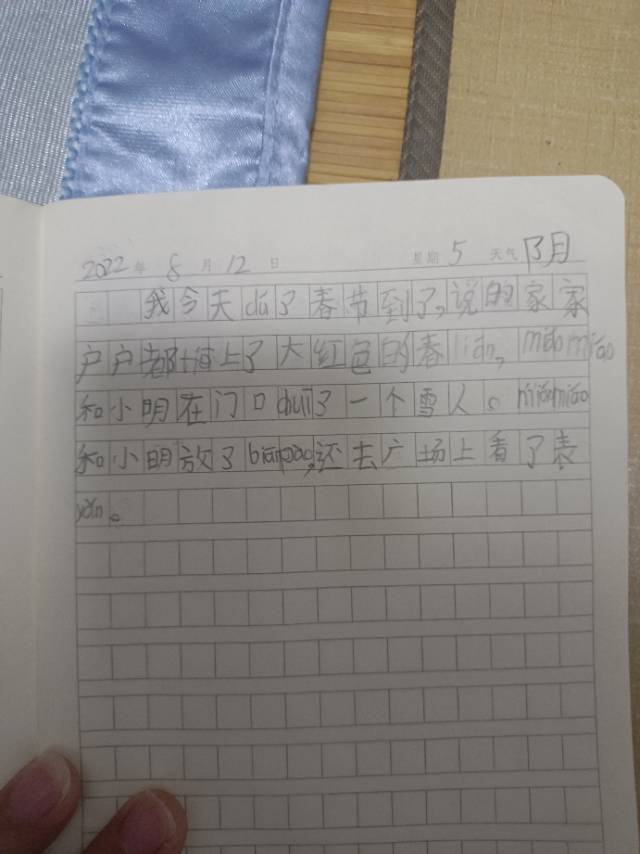 2022年 8月 12日 星期5 天气阴
我今天dú了春节到了,说的家家
户户都贴上了大红包的春lián,miāomiāo
和小明在门口duī了一个雪人。miāomiāo
和小明放了biānpào,还去广场上看了表
yǎn。